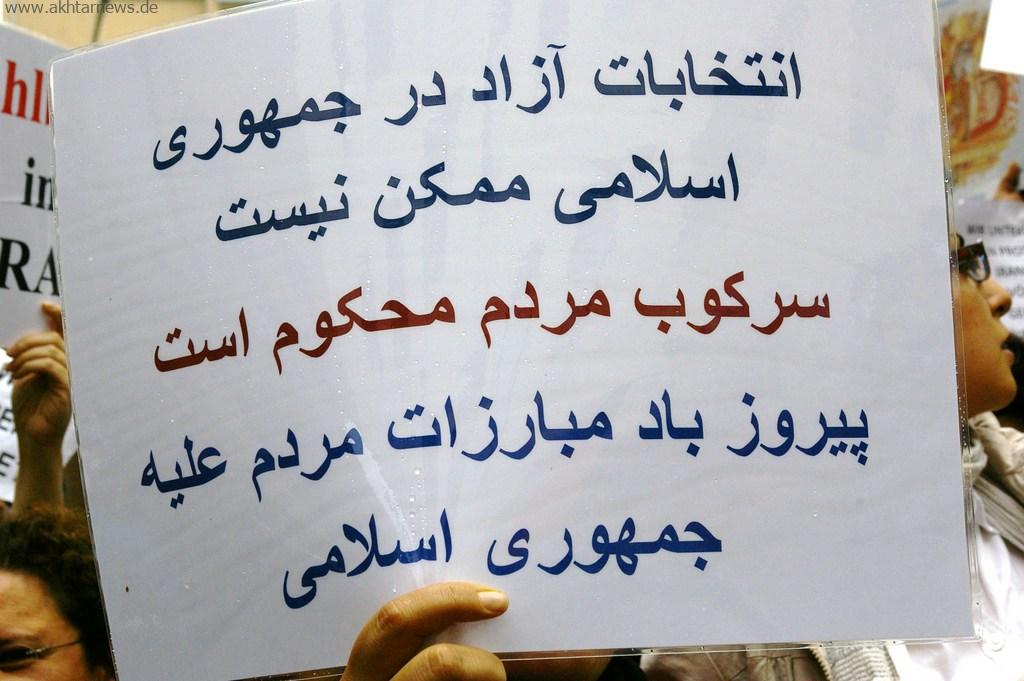 www.akhtarnews.de
انتخابات آزاد در جمهوری
اسلامی ممکن نیست
سرکوب مردم محکوم است
پیروز باد مبارزات مردم علیه
جمهوری اسلامی
in